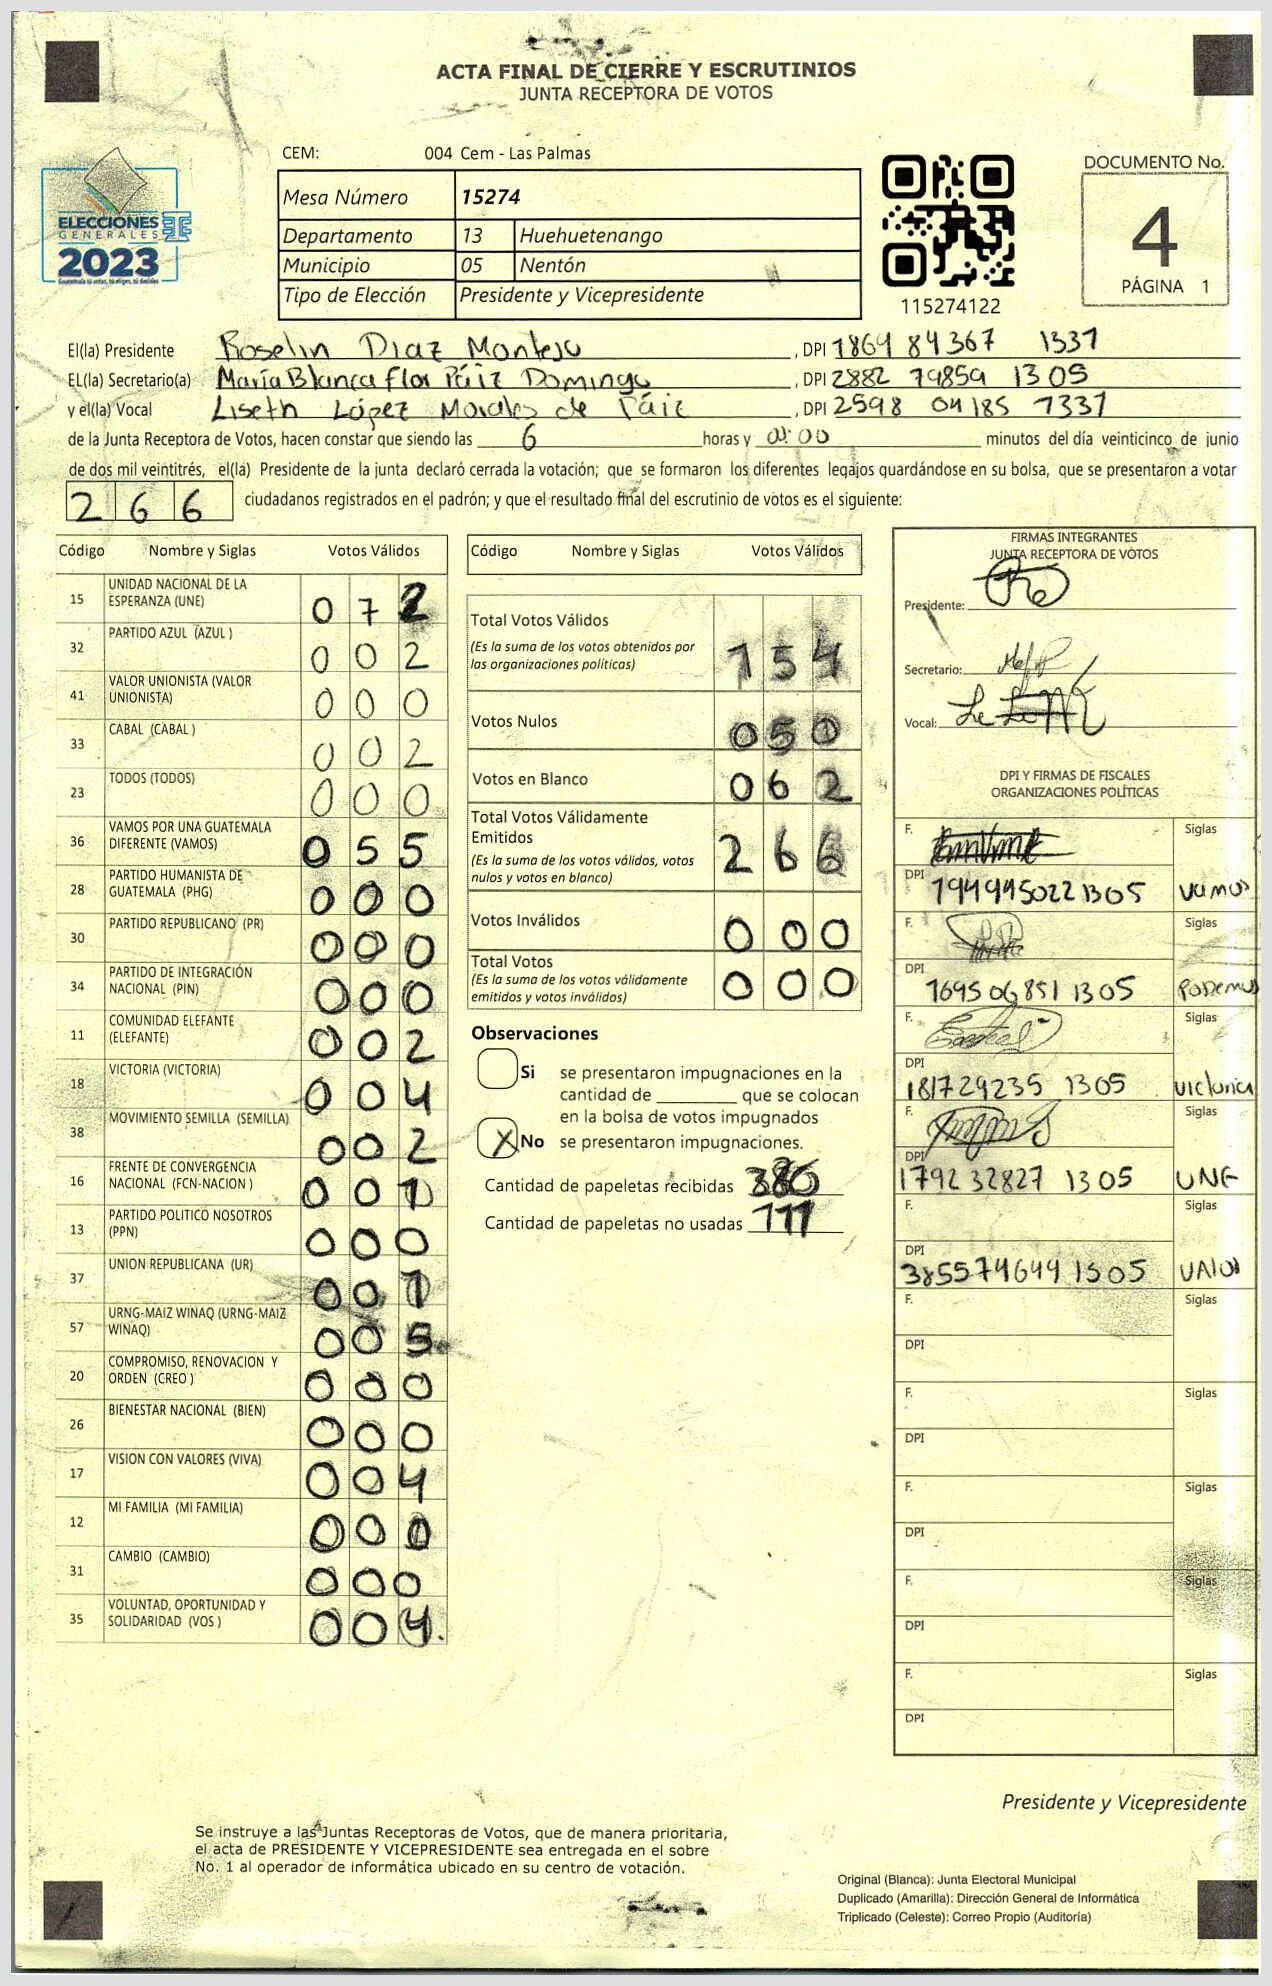 ACTA FINAL DE CIERRE Y ESCRUTINIOS
JUNTA RECEPTORA DE VOTOS
CEM: 004 Cem - Las Palmas
ELECCIONES
GENERALES
2023
Guatemala tú votas, tú eliges, tú decides
Mesa Número 15274
Departamento 13 Huehuetenango
Municipio 05 Nentón
Tipo de Elección Presidente y Vicepresidente
115274122
DOCUMENTO No.
4
PÁGINA 1
El(la) Presidente Roselin Diaz Montejo, DPI 1864 84367 1331
EL(la) Secretario(a) María Blanca flor Páiz Domingo, DPI 2882 79859 1305
y el(la) Vocal Liseth López Morales de Páiz, DPI 2598 04185 1331
de la Junta Receptora de Votos, hacen constar que siendo las 6 horas y 00:00 minutos del día veinticinco de junio
de dos mil veintitrés, el(la) Presidente de la junta declaró cerrada la votación; que se formaron los diferentes legajos guardándose en su bolsa, que se presentaron a votar
266 ciudadanos registrados en el padrón; y que el resultado final del escrutinio de votos es el siguiente:
Código Nombre y Siglas Votos Válidos
15 UNIDAD NACIONAL DE LA
ESPERANZA (UNE) 0 7 2
32 PARTIDO AZUL (AZUL ) 0 0 2
41 VALOR UNIONISTA (VALOR
UNIONISTA) 0 0 0
33 CABAL (CABAL ) 0 0 2
23 TODOS (TODOS) 0 0 0
36 VAMOS POR UNA GUATEMALA
DIFERENTE (VAMOS) 0 5 5
28 PARTIDO HUMANISTA DE
GUATEMALA (PHG) 0 0 0
30 PARTIDO REPUBLICANO (PR) 0 0 0
34 PARTIDO DE INTEGRACIÓN
NACIONAL (PIN) 0 0 0
11 COMUNIDAD ELEFANTE
(ELEFANTE) 0 0 2
18 VICTORIA (VICTORIA) 0 0 4
38 MOVIMIENTO SEMILLA (SEMILLA) 0 0 2
16 FRENTE DE CONVERGENCIA
NACIONAL (FCN-NACION ) 0 0 1
13 PARTIDO POLITICO NOSOTROS
(PPN) 0 0 0
37 UNION REPUBLICANA (UR) 0 0 1
57 URNG-MAIZ WINAQ (URNG-MAIZ
WINAQ) 0 0 5
20 COMPROMISO, RENOVACION Y
ORDEN (CREO ) 0 0 0
26 BIENESTAR NACIONAL (BIEN) 0 0 0
17 VISION CON VALORES (VIVA) 0 0 4
12 MI FAMILIA (MI FAMILIA) 0 0 0
31 CAMBIO (CAMBIO) 0 0 0
35 VOLUNTAD, OPORTUNIDAD Y
SOLIDARIDAD (VOS ) 0 0 4
Código Nombre y Siglas Votos Válidos
Total Votos Válidos
(Es la suma de los votos obtenidos por
las organizaciones políticas) 1 5 4
Votos Nulos 0 5 0
Votos en Blanco 0 6 2
Total Votos Válidamente
Emitidos
(Es la suma de los votos válidos, votos
nulos y votos en blanco) 2 6 6
Votos Inválidos 0 0 0
Total Votos
(Es la suma de los votos válidamente
emitidos y votos inválidos) 0 0 0
Observaciones
Si se presentaron impugnaciones en la
cantidad de ________ que se colocan
en la bolsa de votos impugnados
X No se presentaron impugnaciones.
Cantidad de papeletas recibidas
Cantidad de papeletas no usadas 111
FIRMAS INTEGRANTES
JUNTA RECEPTORA DE VOTOS
Presidente:
Secretario:
Vocal:
DPI Y FIRMAS DE FISCALES
ORGANIZACIONES POLÍTICAS
F. Siglas
DPI 194945022 1305 vamos
F. Siglas
DPI 1695 06851 1305 Podemos
F. Siglas
DPI 181729235 1305 victoria
F. Siglas
DPI 1792 32827 1305 UNE
F. Siglas
DPI 385574649 1305 VAlOR
F. Siglas
DPI
F. Siglas
DPI
F. Siglas
DPI
F. Siglas
DPI
F. Siglas
DPI
Presidente y Vicepresidente
Se instruye a las Juntas Receptoras de Votos, que de manera prioritaria,
el acta de PRESIDENTE Y VICEPRESIDENTE sea entregada en el sobre
No. 1 al operador de informática ubicado en su centro de votación.
Original (Blanca): Junta Electoral Municipal
Duplicado (Amarilla): Dirección General de Informática
Triplicado (Celeste): Correo Propio (Auditoría)